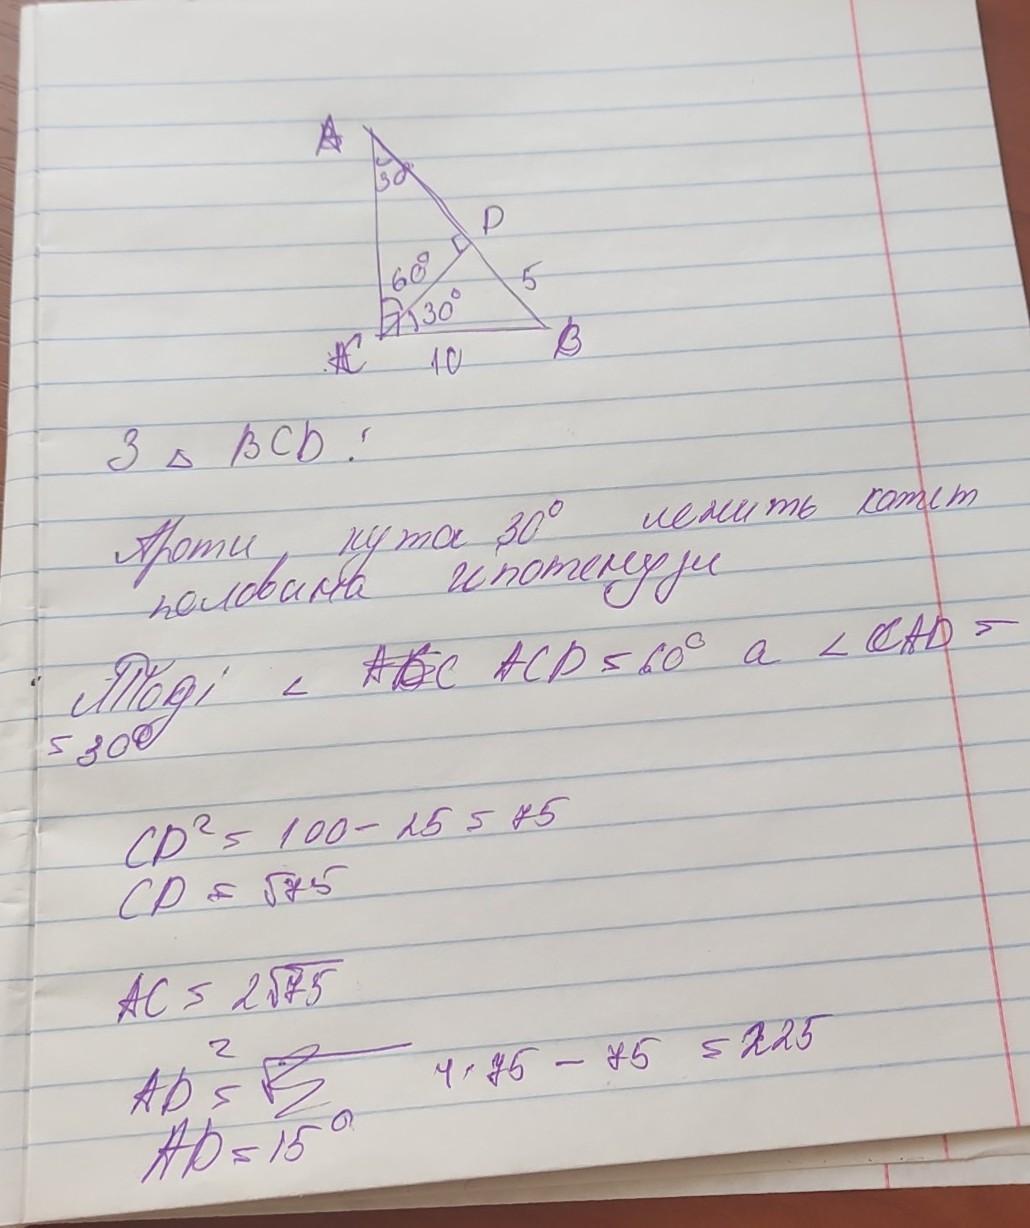 A
30
D
60°
5
30°
C
10
B
З △ BCD:
Проти кута 30° лежить катет
половина гіпотенузи
Тоді ∠ ACD = 60° а ∠ CAD =
= 30°
CD² = 100 - 25 = 75
CD = √75
AC = 2√75
AD² = 4·75 - 75 = 225
AD = 15°